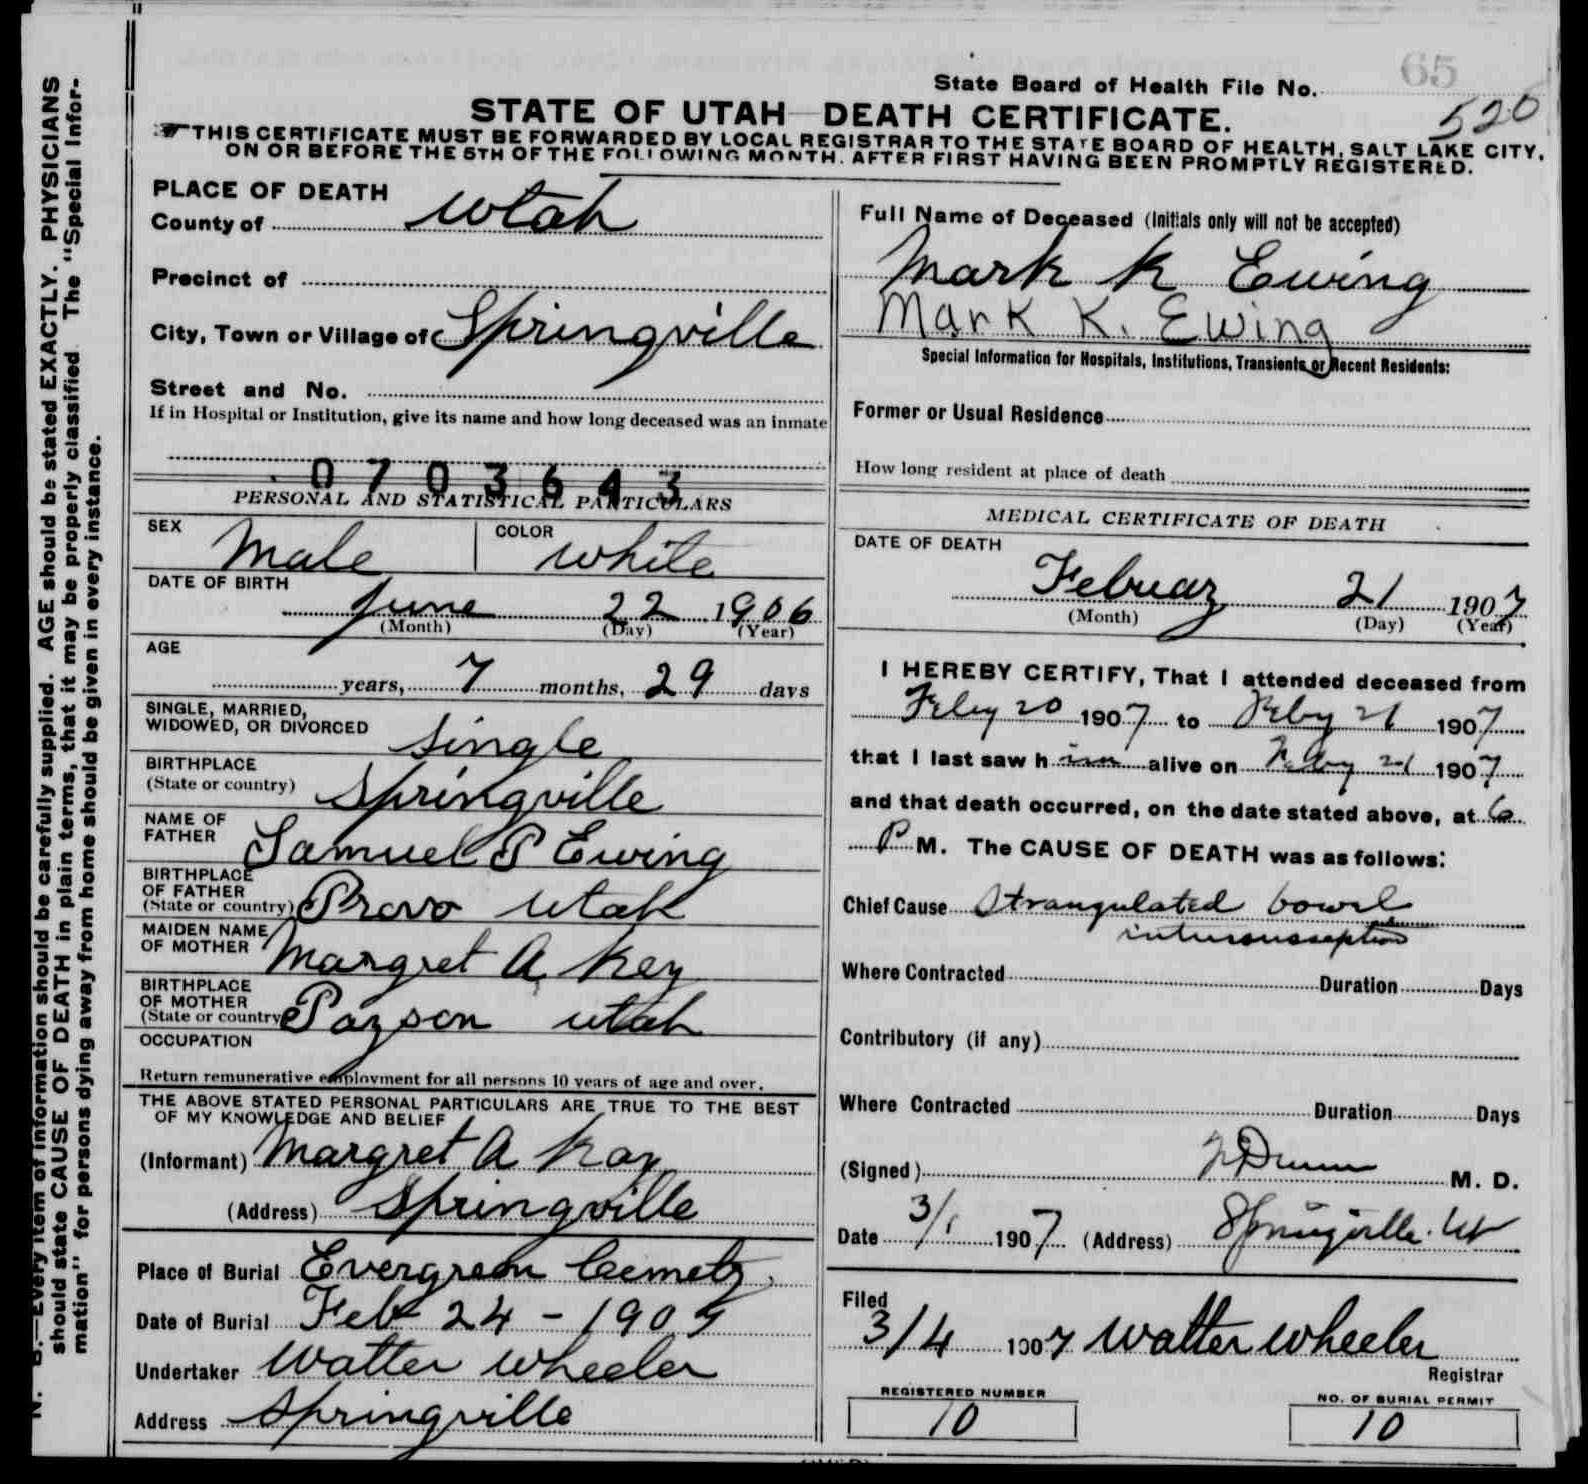 State Board of Health File No. 65
526
STATE OF UTAH DEATH CERTIFICATE.
THIS CERTIFICATE MUST BE FORWARDED BY LOCAL REGISTRAR TO THE STATE BOARD OF HEALTH, SALT LAKE CITY,
ON OR BEFORE THE 5TH OF THE FOLLOWING MONTH, AFTER FIRST HAVING BEEN PROMPTLY REGISTERED.
N. B.—Every item of information should be carefully supplied. AGE should be stated EXACTLY. PHYSICIANS
should state CAUSE OF DEATH in plain terms, that it may be properly classified The "Special Infor-
mation" for persons dying away from home should be given in every instance.
PLACE OF DEATH
County of Utah
Precinct of
City, Town or Village of Springville
Street and No.
If in Hospital or Institution, give its name and how long deceased was an inmate
0703643
PERSONAL AND STATISTICAL PARTICULARS
SEX Male COLOR White
DATE OF BIRTH
June 22 1906
(Month) (Day) (Year)
AGE
years, 7 months, 29 days
SINGLE, MARRIED,
WIDOWED, OR DIVORCED Single
BIRTHPLACE
(State or country) Springville
NAME OF
FATHER Samuel P Ewing
BIRTHPLACE
OF FATHER
(State or country) Provo Utah
MAIDEN NAME
OF MOTHER Margret A Key
BIRTHPLACE
OF MOTHER
(State or country Payson Utah
OCCUPATION
Return remunerative employment for all persons 10 years of age and over.
THE ABOVE STATED PERSONAL PARTICULARS ARE TRUE TO THE BEST
OF MY KNOWLEDGE AND BELIEF
(Informant) Margret A Kay
(Address) Springville
Place of Burial Evergreen Cemety
Date of Burial Feb 24 - 1907
Undertaker Walter Wheeler
Address Springville
Full Name of Deceased (Initials only will not be accepted)
Mark K Ewing
Mark K. Ewing
Special Information for Hospitals, Institutions, Transients or Recent Residents:
Former or Usual Residence
How long resident at place of death
MEDICAL CERTIFICATE OF DEATH
DATE OF DEATH
Februay 21 1907
(Month) (Day) (Year)
I HEREBY CERTIFY, That I attended deceased from
Feby 20 1907 to Feby 21 1907
that I last saw h im alive on Feby 21 1907
and that death occurred, on the date stated above, at 6
P M. The CAUSE OF DEATH was as follows:
Chief Cause Strangulated bowel
intussusception
Where Contracted Duration Days
Contributory (if any)
Where Contracted Duration Days
(Signed) Dunn M. D.
Date 3/1 1907 (Address) Springville. Ut
Filed
3/4 1907 Walter Wheeler
Registrar
REGISTERED NUMBER
10
NO. OF BURIAL PERMIT
10